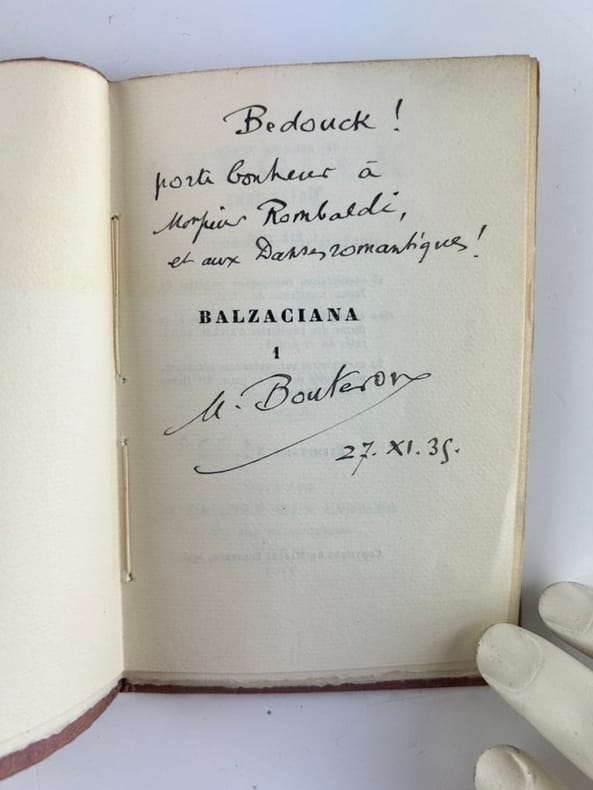 Bedouck !
porte bonheur à
Monsieur Rombaldi,
et aux Danses romantiques !
BALZACIANA
1
M. Bouteron
27. XI. 35.